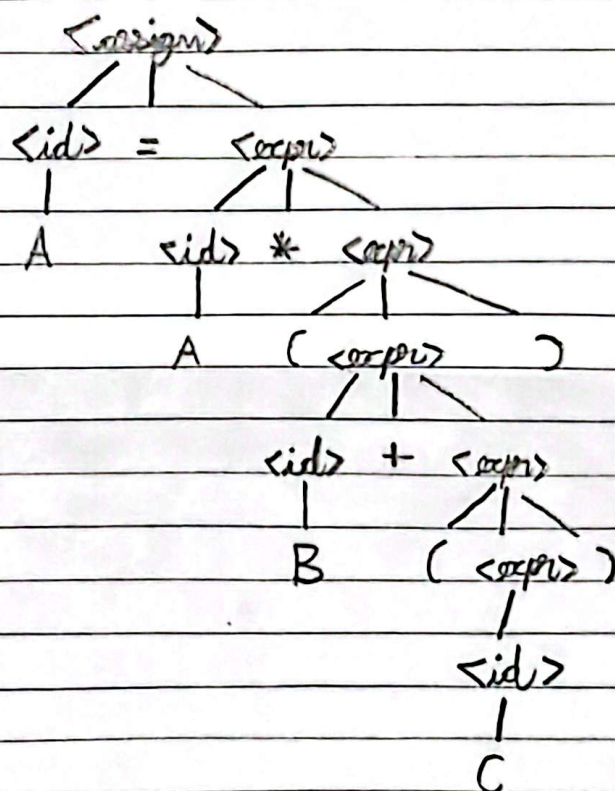 <assign>
<id> = <expr>
A <id> * <expr>
A ( <expr> )
<id> + <expr>
B ( <expr> )
<id>
C